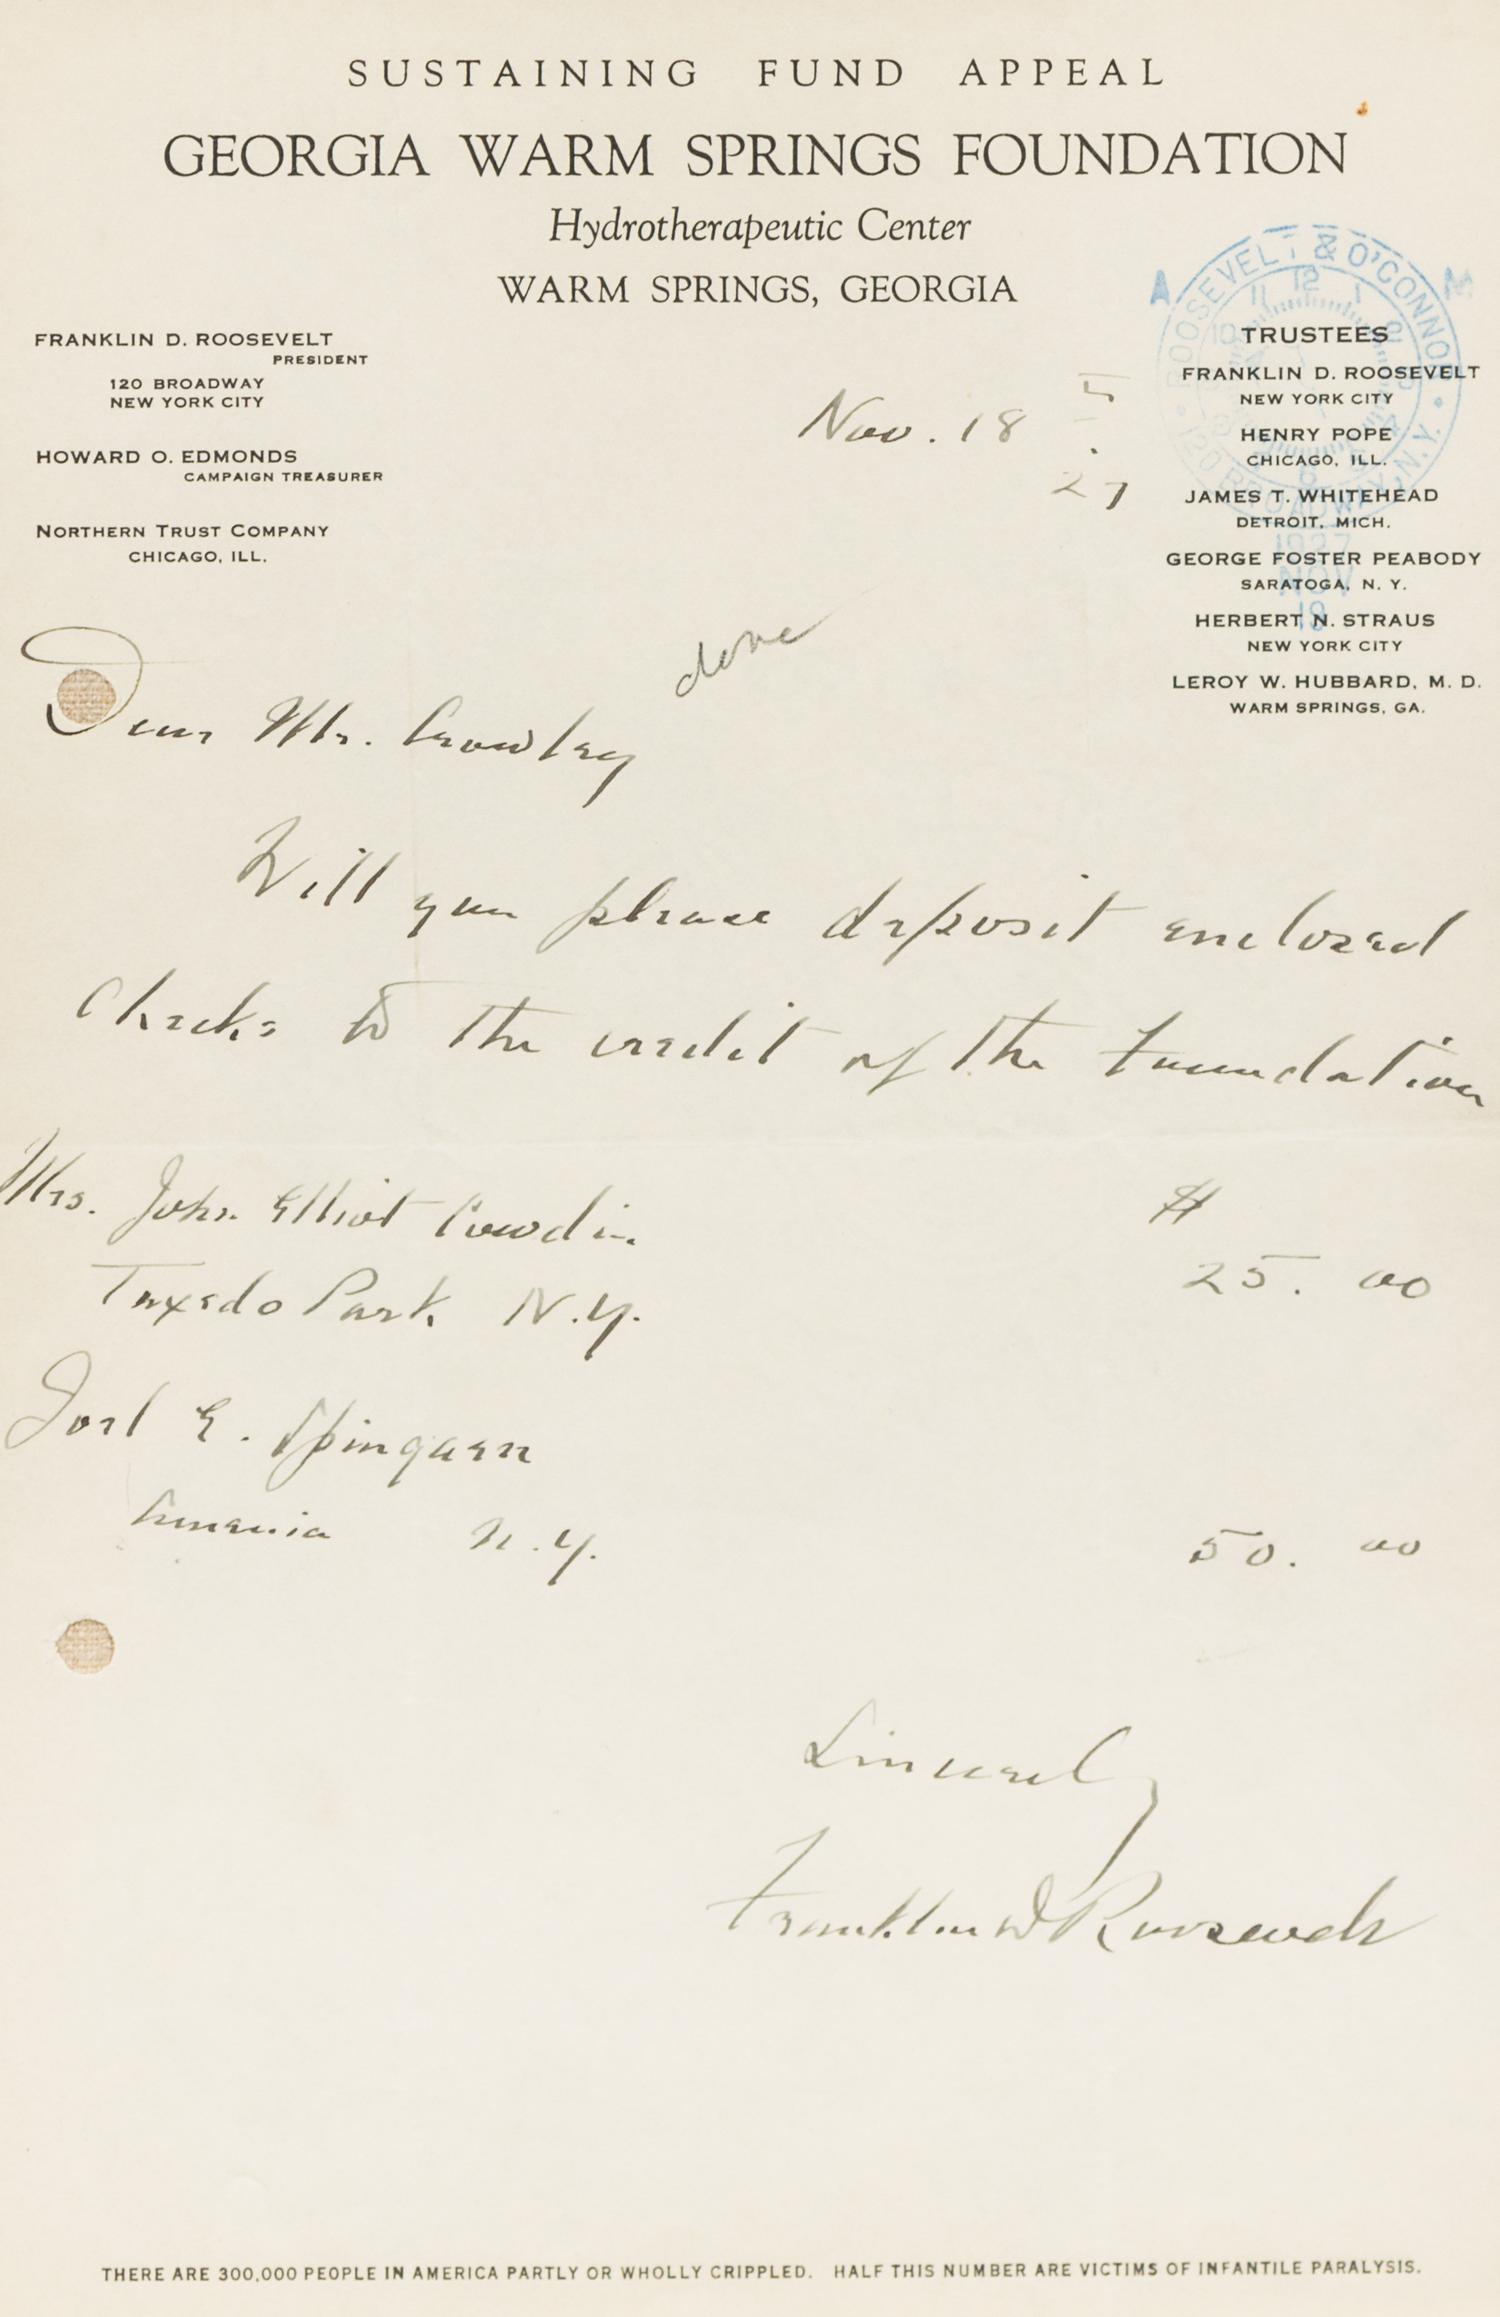 SUSTAINING FUND APPEAL
GEORGIA WARM SPRINGS FOUNDATION
Hydrotherapeutic Center
WARM SPRINGS, GEORGIA
FRANKLIN D. ROOSEVELT
PRESIDENT
120 BROADWAY
NEW YORK CITY
HOWARD O. EDMONDS
CAMPAIGN TREASURER
NORTHERN TRUST COMPANY
CHICAGO, ILL.
A M
ROOSEVELT & O'CONNOR
120 BROADWAY, N.Y.
1927
NOV
19
TRUSTEES
FRANKLIN D. ROOSEVELT
NEW YORK CITY
HENRY POPE
CHICAGO, ILL.
JAMES T. WHITEHEAD
DETROIT, MICH.
GEORGE FOSTER PEABODY
SARATOGA, N. Y.
HERBERT N. STRAUS
NEW YORK CITY
LEROY W. HUBBARD, M. D.
WARM SPRINGS, GA.
Nov. 18
27
done
Dear Mr. Crowley
Will you please deposit enclosed
checks to the credit of the Foundation
Mrs. John Elliot Cowdin $
Tuxedo Park N.Y. 25.00
Joel E. Spingarn
Amenia N.Y. 50.00
Sincerely
Franklin D Roosevelt
THERE ARE 300,000 PEOPLE IN AMERICA PARTLY OR WHOLLY CRIPPLED. HALF THIS NUMBER ARE VICTIMS OF INFANTILE PARALYSIS.